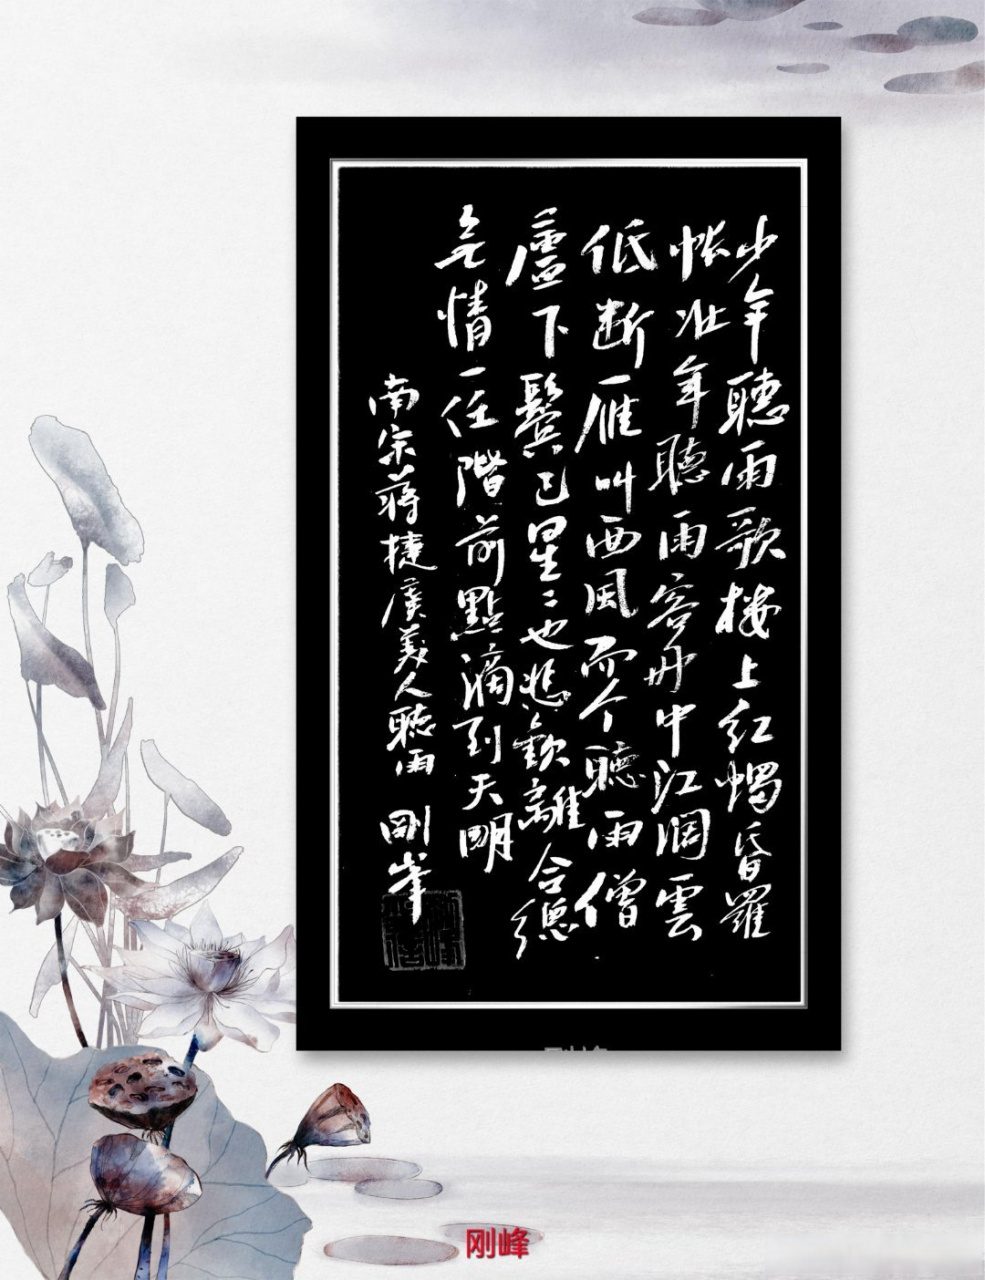 少年聽雨歌樓上紅燭昏羅
帳壯年聽雨客舟中江濶雲
低断雁叫西風而今聽雨僧
廬下鬓已星〻也悲歡離合總
無情一任階前點滴到天明
南宋蔣捷虞美人聽雨 剛峯
刚峰
刚峰